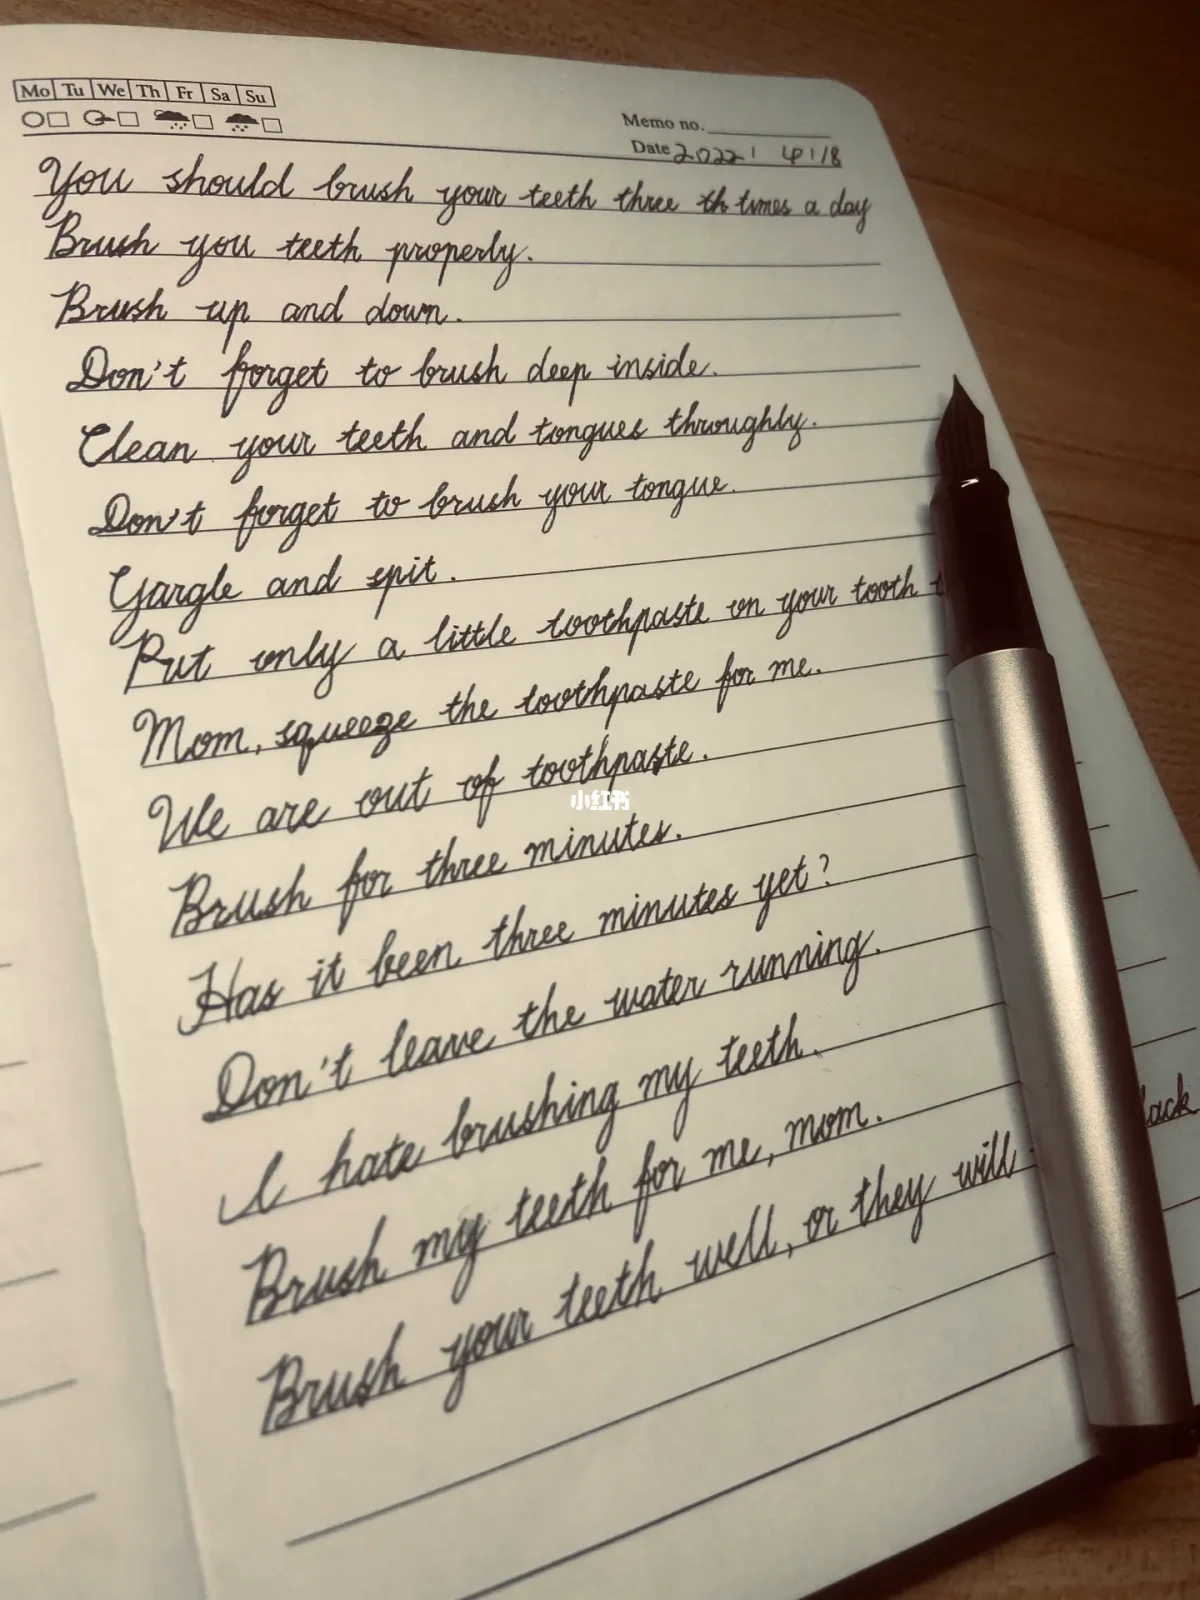 Mo Tu We Th Fr Sa Su
Memo no.
Date 2022 4 18
You should brush your teeth three th times a day
Brush you teeth properly.
Brush up and down.
Don't forget to brush deep inside.
Clean your teeth and tongues throughly.
Don't forget to brush your tongue.
Gargle and spit.
Put only a little toothpaste on your tooth
Mom, squeeze the toothpaste for me.
We are out of toothpaste.
小红书
Brush for three minutes.
Has it been three minutes yet?
Don't leave the water running.
I hate brushing my teeth.
Brush my teeth for me, mom.
Brush your teeth well, or they will